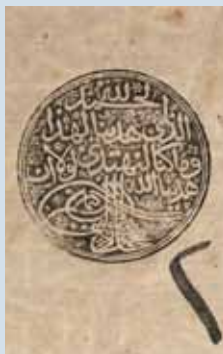 الحمد لله
الذي هدينا لهذا
وما كنا لنهتدي لولا ان
هدينا الله
٢